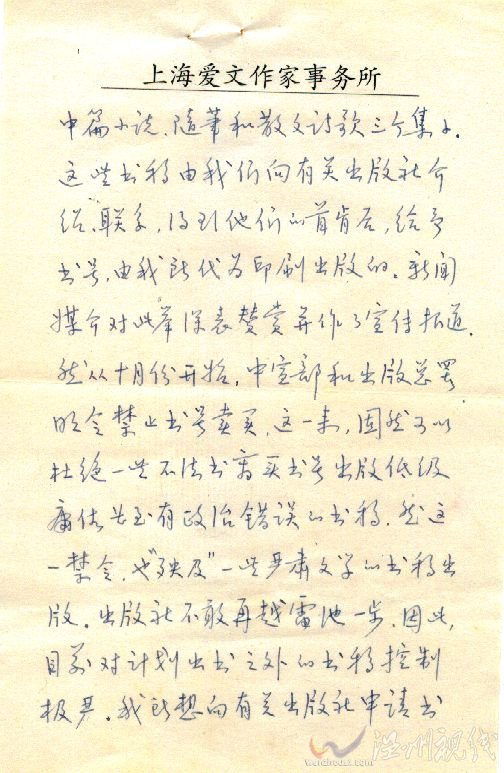 上海爱文作家事务所
中篇小说、随笔和散文诗歌三个集子.
这些书稿由我们向有关出版社介
绍、联系,得到他们的首肯后,给予
书号,由我所代为印刷出版的。新闻
媒介对此举深表赞赏并作了宣传报道.
然从十月份开始,中宣部和出版总署
明令禁止书号卖买,这一来,固然可以
杜绝一些不法书商买书号出版低级
庸俗甚至有政治错误的书稿,然这
一禁令,也"殃及"一些严肃文学的书稿出
版。出版社不敢再越雷池一步,因此,
目前对计划出书之外的书稿控制
极严。我所想向有关出版社申请书
温州视线
wenzhousx.com